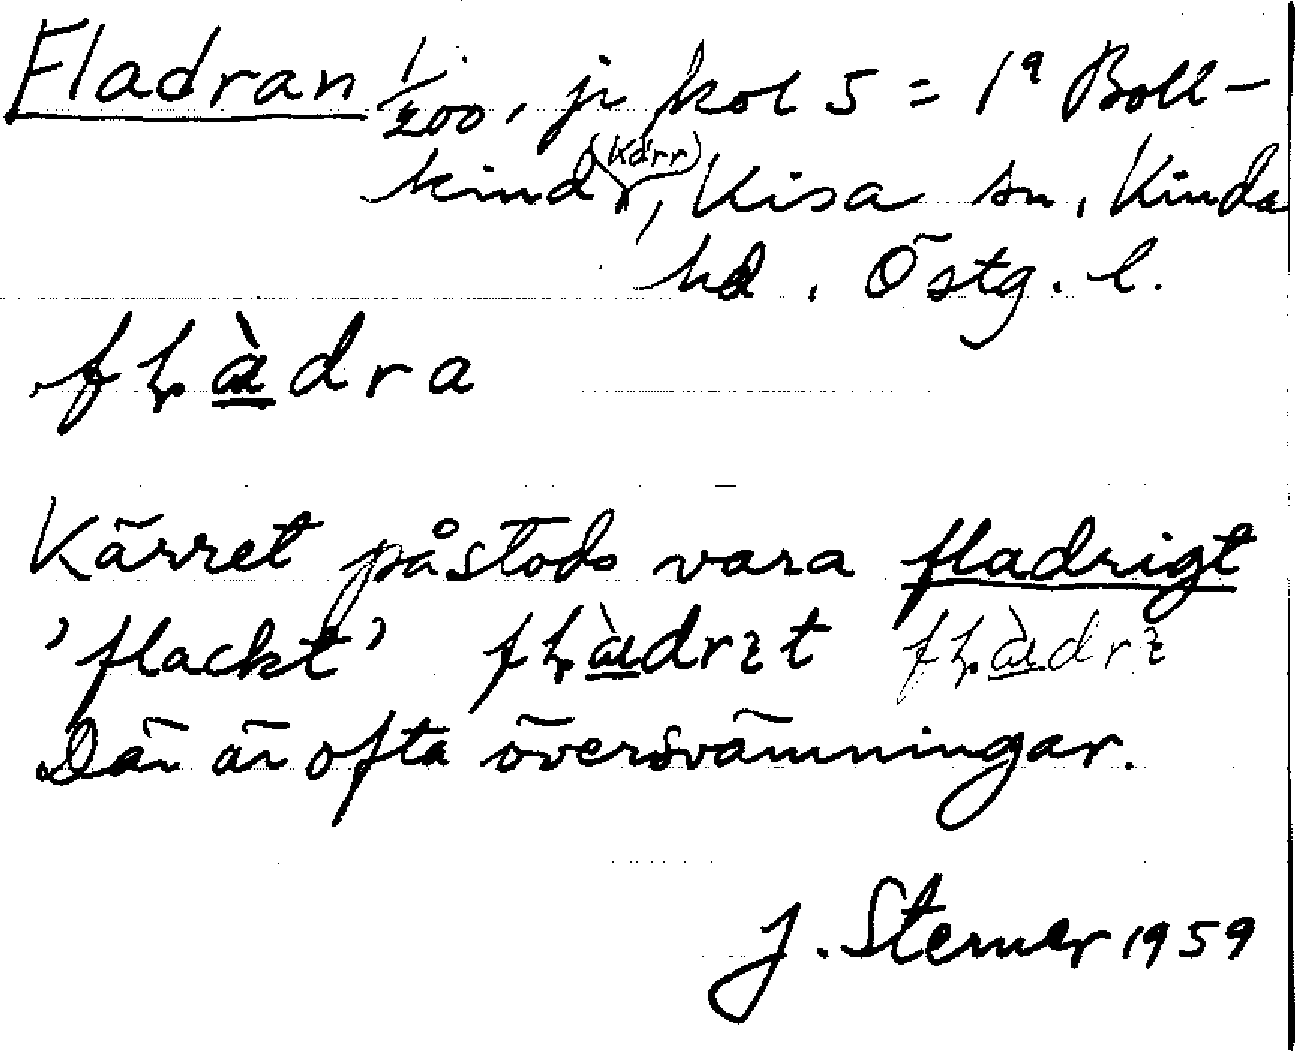 Fladran 1/200, ji kol 5 = 1ª Boll-
kind (Kärr), Kisa sn, Kinda
hd, Östg. l.
fɫàdra
Kärret påstods vara fladrigt
'flackt' fɫàdrɿt fɫàdrɿ
Där är ofta översvämningar.
J. Sterner 1959